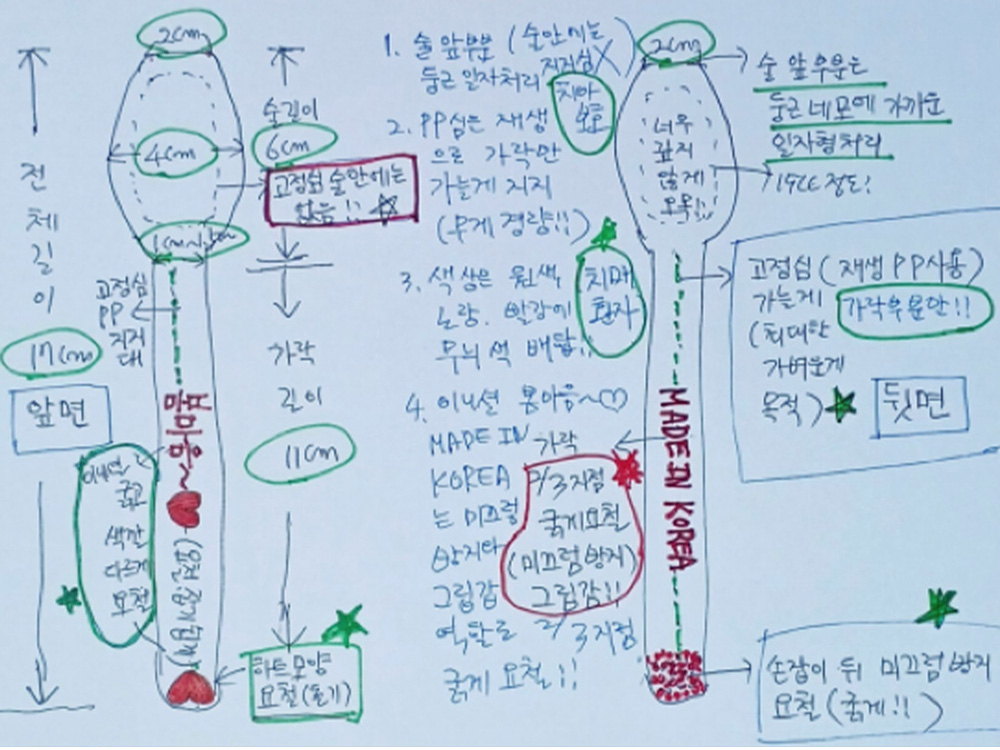 전체길이
17cm
앞면
2cm
4cm
고정심
PP
지저
대
봄마음~
이니셜
굵고
색깔
다르게
요철
술길이
6cm
고정심 술안에는
없음!!
가락
길이
11cm
하트모양
요철(돌기)
1. 술 앞부분 (술안에는
지지심X)
둥근 일자처리
치아
보호
2. PP심은 재생
으로 가락만
가늘게 지지
(무게 경량!!)
3. 색상은 원색
노랑. 빨강에
무늬 색 배합!!
치매
환자
4. 이니셜 봄마음~♡
MADE IN 가락
KOREA 2/3지점
는 미끄럼 굵게요철
방지와 (미끄럼방지)
그립감 그립감!!
역할로 2/3지점
굵게 요철!!
2cm
술 앞부분은
둥근 네모에 가까운
일자형처리
너무
깊지
않게
오목!!
19CC 정도!
고정심 (재생 PP사용)
가늘게 가락부분만!!
(최대한
가벼웁게
목적)
뒷면
MADE IN KOREA
손잡이 뒤 미끄럼방지
요철 (굵게!!)